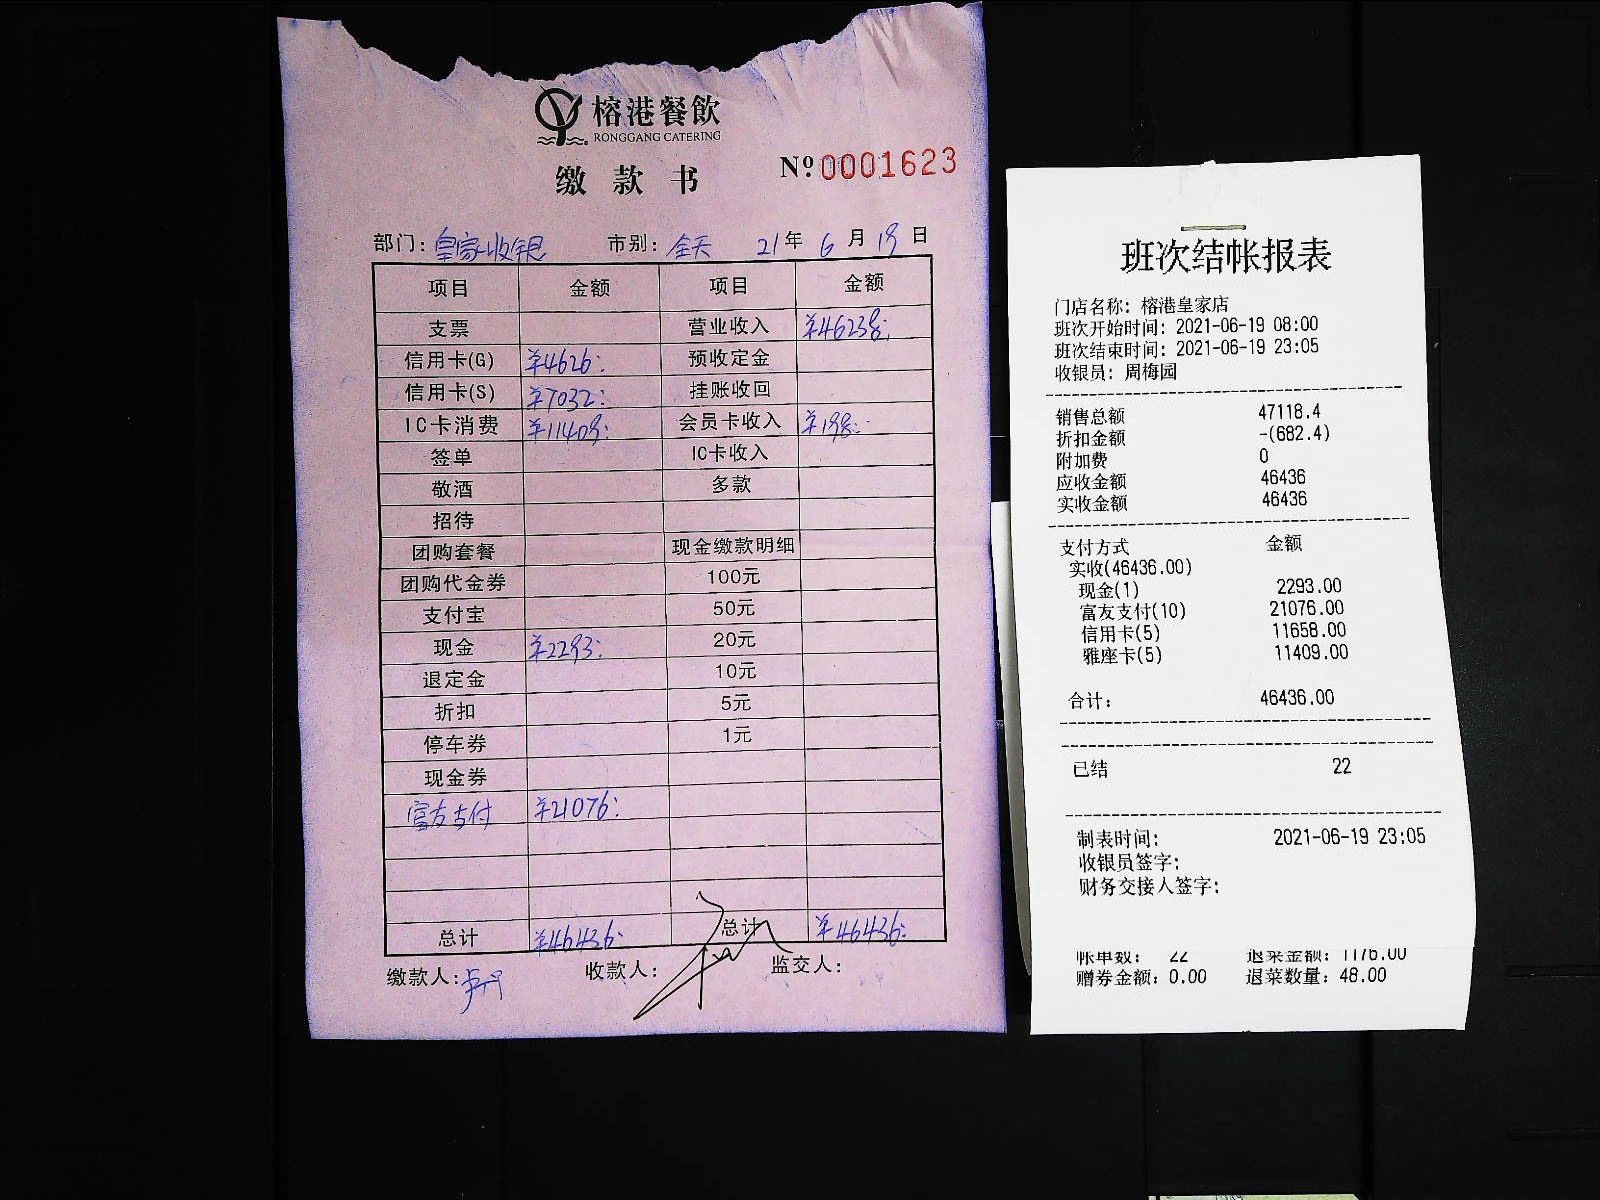 榕港餐飲
RONGGANG CATERING
缴款书
Nº0001623
部门：皇家收银 市别：全天 21年6月19日
项目 金额 项目 金额
支票 营业收入 ¥46238:
信用卡(G) ¥4626: 预收定金
信用卡(S) ¥7032: 挂账收回
IC卡消费 ¥11409: 会员卡收入 ¥198:
签单 IC卡收入
敬酒 多款
招待
团购套餐 现金缴款明细
团购代金券 100元
支付宝 50元
现金 ¥2293: 20元
退定金 10元
折扣 5元
停车券 1元
现金券
富友支付 ¥21076:
总计 ¥46436: 总计 ¥46436:
缴款人： 收款人： 监交人：
班次结帐报表
门店名称: 榕港皇家店
班次开始时间: 2021-06-19 08:00
班次结束时间: 2021-06-19 23:05
收银员: 周梅园
销售总额 47118.4
折扣金额 -(682.4)
附加费 0
应收金额 46436
实收金额 46436
支付方式 金额
实收(46436.00)
现金(1) 2293.00
富友支付(10) 21076.00
信用卡(5) 11658.00
雅座卡(5) 11409.00
合计: 46436.00
已结 22
制表时间: 2021-06-19 23:05
收银员签字:
财务交接人签字:
帐单数: 22 退菜金额: 1176.00
赠券金额: 0.00 退菜数量: 48.00